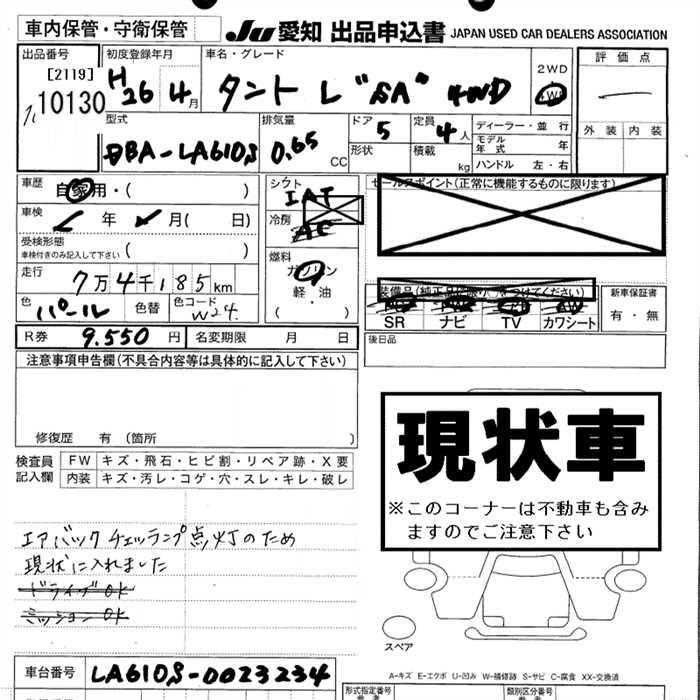 車内保管・守衛保管
JU 愛知 出品申込書 JAPAN USED CAR DEALERS ASSOCIATION
出品番号 初度登録年月 車名・グレード 2WD 評価点
[2119]
10130 H26 4月 タント L "SA" 4WD 4WD
外装 内装
型式 排気量 ドア 定員 ディーラー・並行
DBA-LA610S 0.65 CC 5 4人 モデル年式 年
形状 積載 kg ハンドル 左・右
車歴 自家用・( ) シフト IAT セールスポイント(正常に機能するものに限ります)
車検 年 月( 日) 冷房 AC
受検形態
車検付きのみ記入して下さい ( ) 燃料 ガソリン
走行 7万4千185km 軽・油
装備品(純正品に限り)をつけてください) 新車保証書
色 パール 色替 色コード W24 ( ) SR ナビ TV カワシート 有・無
R券 9.550円 名変期限 月 日 後日品
注意事項申告欄(不具合内容等は具体的に記入して下さい)
修復歴 有 (箇所 )
検査員 FW キズ・飛石・ヒビ割・リペア跡・X要
記入欄 内装 キズ・汚レ・コゲ・穴・スレ・キレ・破レ
現状車
※このコーナーは不動車も含み
ますのでご注意下さい
エアバック チェッランプ点灯のため
現状に入れました
ドライブOK
ミッションOK
スペア
A-キズ E-エクボ U-凹み W-補修跡 S-サビ C-腐食 XX-交換済
車台番号 LA610S-0023234 形式指定番号 類別区分番号
参考 参考